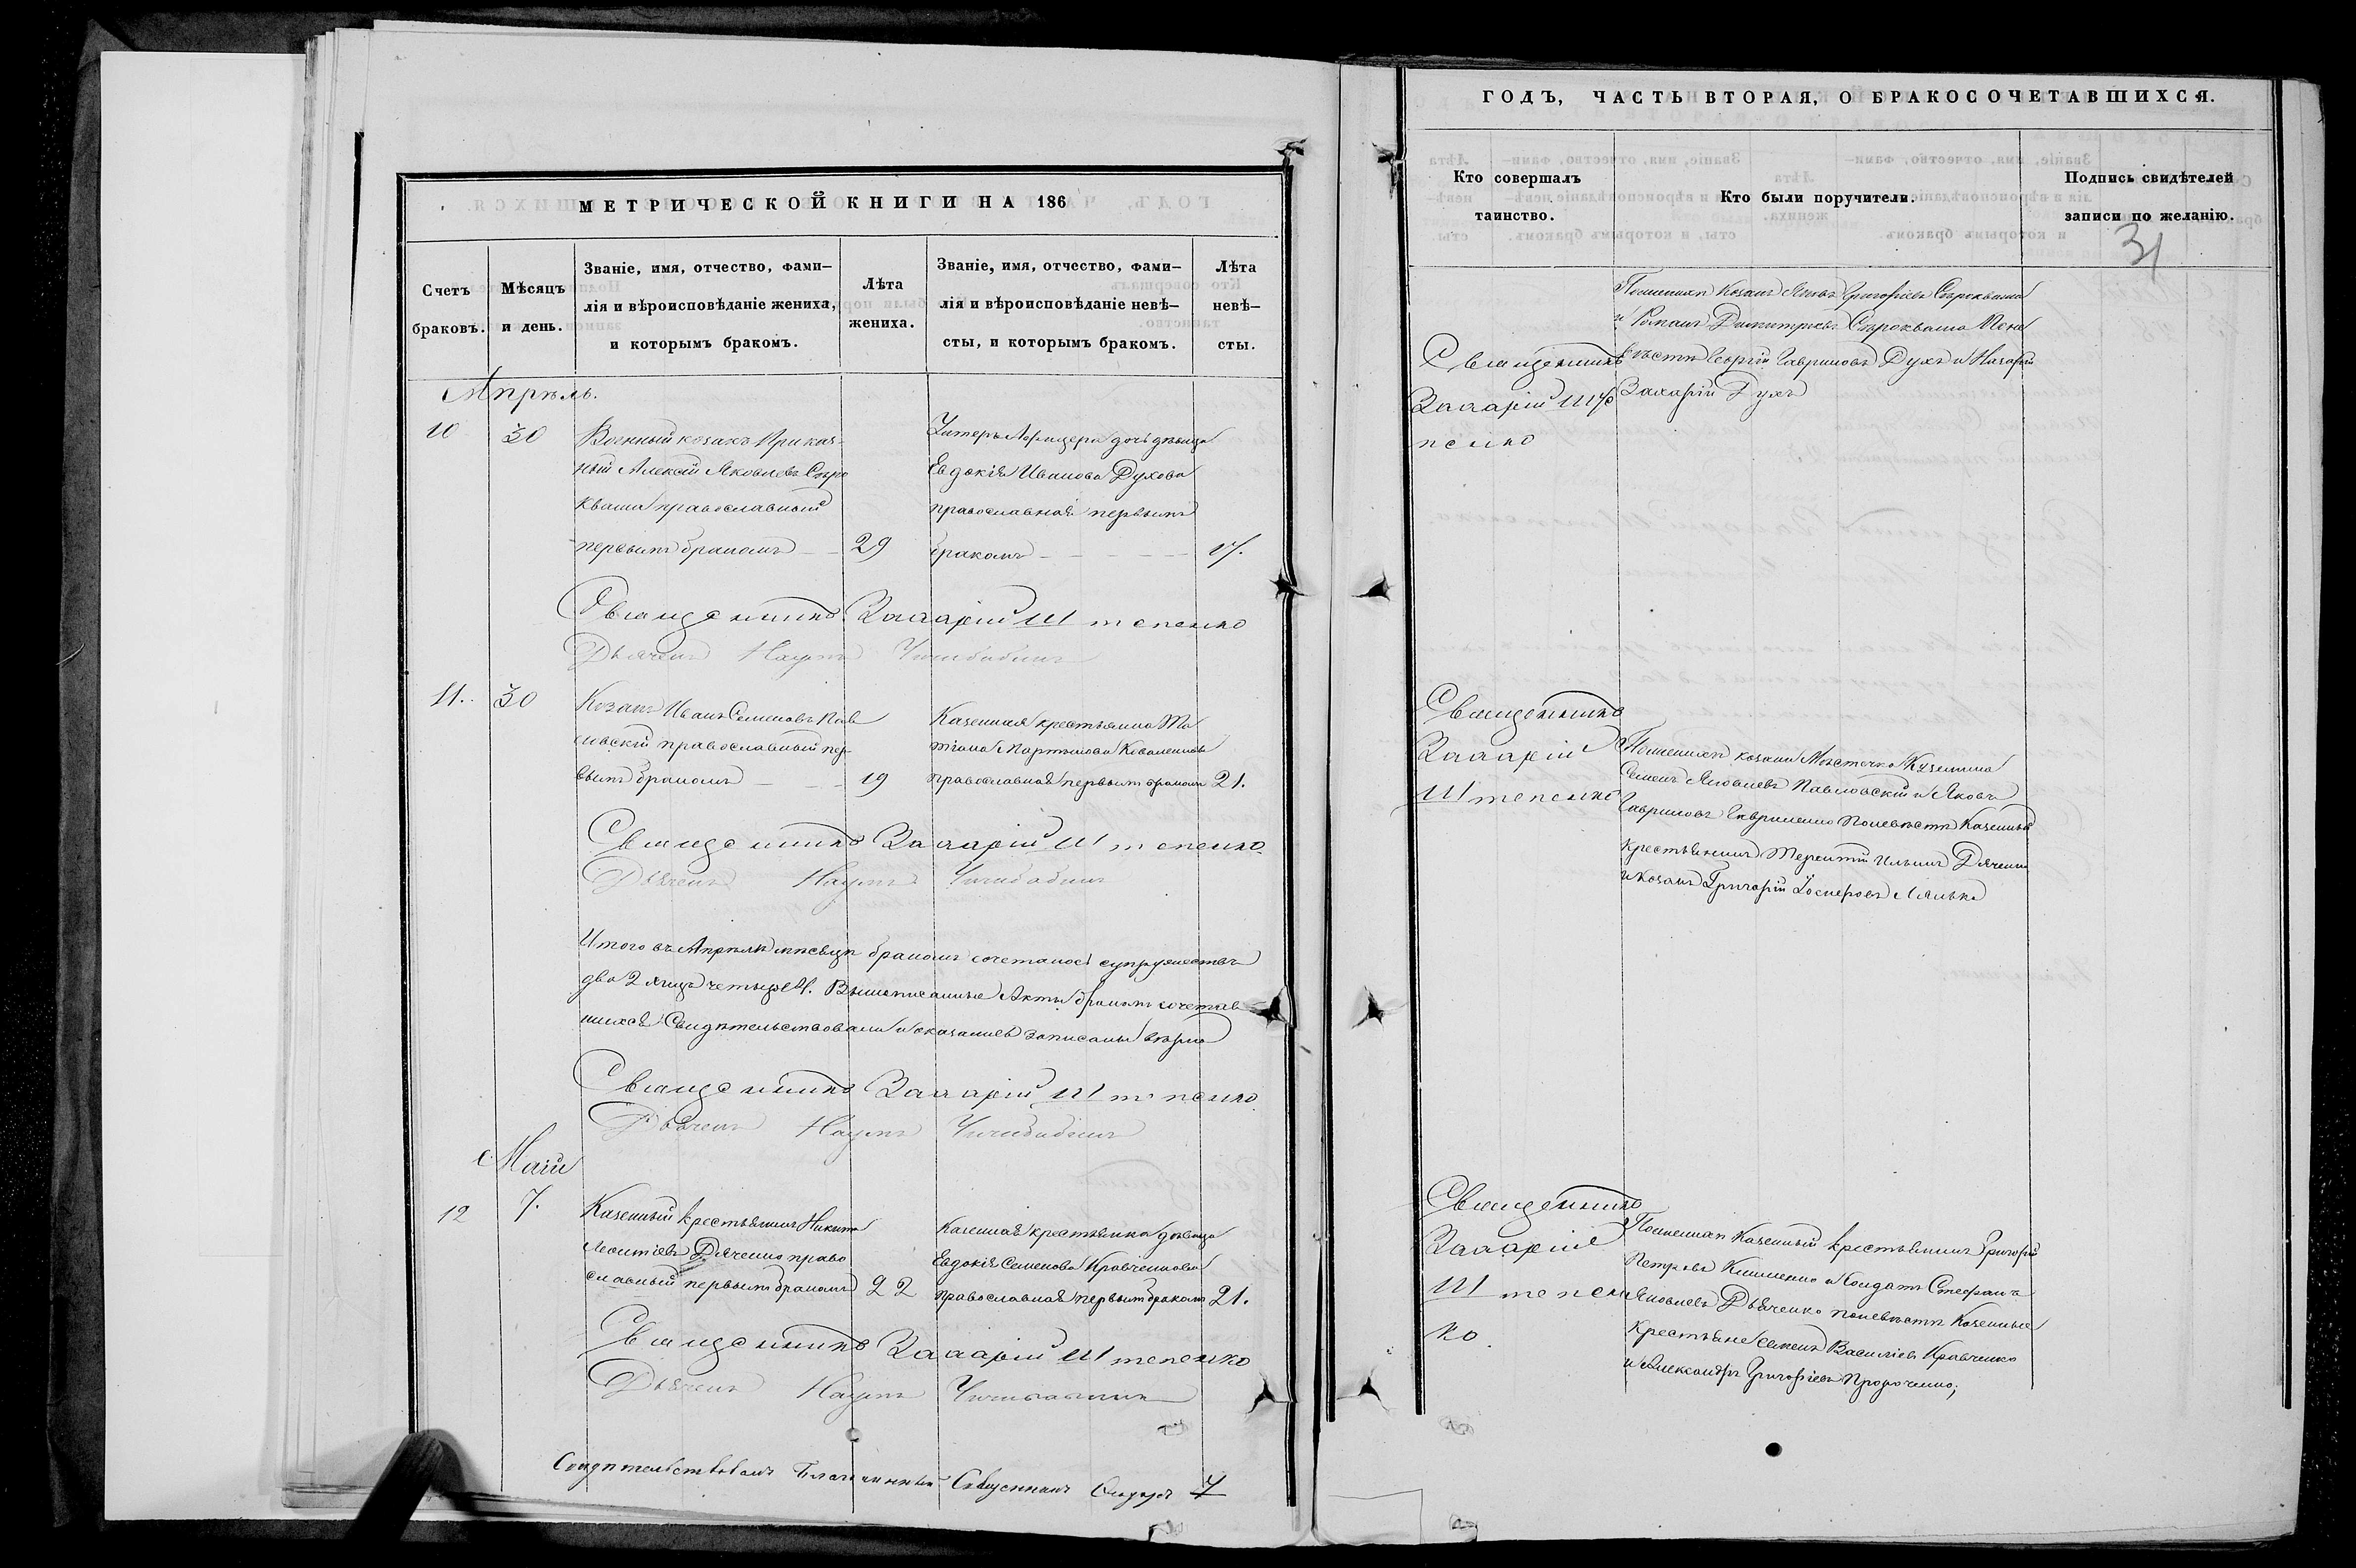 МЕТРИЧЕСКОЙ КНИГИ НА 186
Счетъ браковъ.
Мѣсяцъ и день.
Званіе, имя, отчество, фами-
лія и вѣроисповѣданіе жениха,
и которымъ бракомъ.
Лѣта жениха.
Званіе, имя, отчество, фами-
лія и вѣроисповѣданіе невѣ-
сты, и которымъ бракомъ.
Лѣта невѣ-
сты.
Апрѣль.
10 30
Военный козакъ Приказ-
ный Алексѣй Яковлевъ Сыро
кваша православный
первымъ бракомъ 29
дочь дѣвица
Евдокія Иванова Духова
православная первымъ
бракомъ 17.
Священникъ Захарій Штепенко
Дьячекъ Наумъ
11. 30
Козакъ Иванъ Семеновъ Пав
ловскій православный пер-
вымъ бракомъ 19
Казенная крестьянка Та
тіана Мартынова Коваленкова
православная первымъ бракомъ 21.
Священникъ Захарій Штепенко.
Дьячекъ Наумъ
Итого въ Апрѣлѣ мѣсяцѣ бракомъ сочеталось супружествъ
два 2 лицъ четыре 4. Вышеписанные Акты бракомъ сочетав
шихся Свидѣтельствовали и оказались записаны вѣрно
Священникъ Захарій Штепенко
Дьячекъ Наумъ
Маій
12 7.
Казенный крестьянинъ Никита
Леонтіевъ Дяченко право
славный первымъ бракомъ 22
Казенная крестьянка дѣвица
Евдокія Семенова Кравченкова
православная первымъ бракомъ 21.
Священникъ Захарій Штепенко
Дьячекъ Наумъ
Свидѣтельствовалъ Благочинный Священникъ
ГОДЪ, ЧАСТЬ ВТОРАЯ, О БРАКОСОЧЕТАВШИХСЯ.
Кто совершалъ
таинство.
Кто были поручители.
Подпись свидѣтелей
записи по желанію.
31
Священникъ
Захарій Ште
пенко
По женихѣ Козакъ Яковъ Григорьевъ Сырокваша
и Романъ Димитріевъ Сырокваша По не
вѣстѣ Георгій Гавриловъ Духъ и Назарій
Захарій Духъ
Священникъ
Захарій
Штепенко
По женихѣ козаки Мѣстечка
Семенъ Яковлевъ Павловскій и Яковъ
Гавриловъ Гавриленко По невѣстѣ Казенный
крестьянинъ Терентій Ильинъ Дяченко
и козакъ Григорій
Священникъ
Захарій
Штепен
ко.
По женихѣ Казенный крестьянинъ Григорій
Петровъ и Солдатъ Стефанъ
Яковлевъ Дьяченко по невѣстѣ Казенные
Крестьяне Семенъ Василіевъ Кравченко
и Александръ Григоріевъ